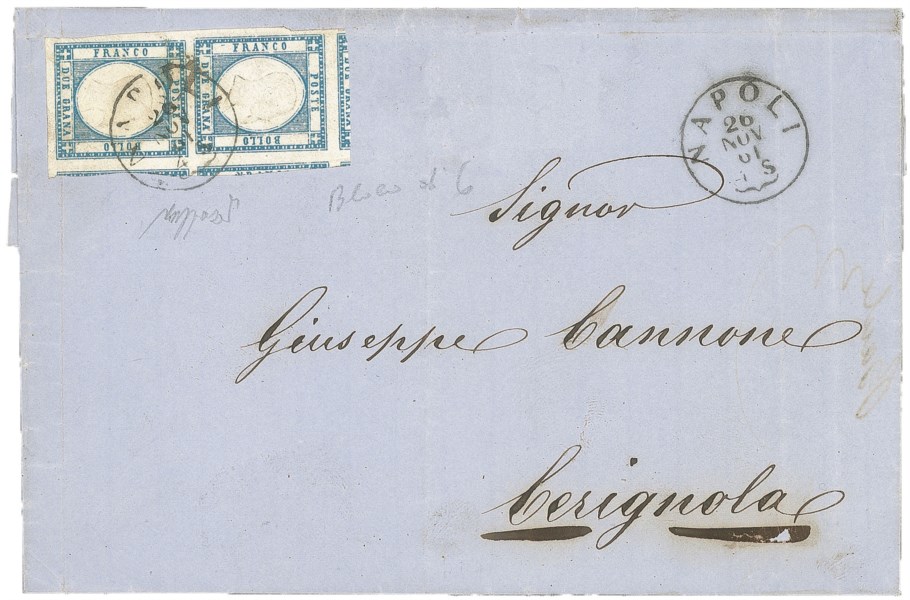 FRANCO
DUE GRANA
POSTE
BOLLO
FRANCO
DUE GRANA
POSTE
BOLLO
DUE GRANA
FRANCO
NAPOLI
26
NOV
61
S
Blocco di 6
Signor
Giuseppe Cannone
Cerignola